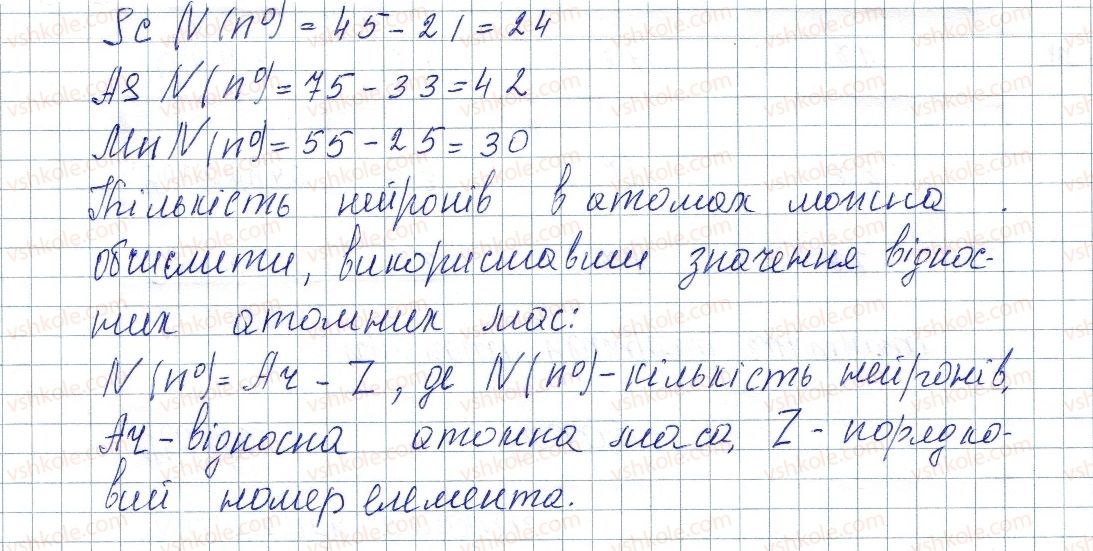 Sc N(n⁰) = 45 - 21 = 24
As N(n⁰) = 75 - 33 = 42
Mn N(n⁰) = 55 - 25 = 30
Кількість нейронів в атомах можна
обчислити, використавши значення віднос-
них атомних мас:
N(n⁰) = Ar - Z, де N(n⁰) - кількість нейронів,
Ar - відносна атомна маса, Z - порядко-
вий номер елемента.